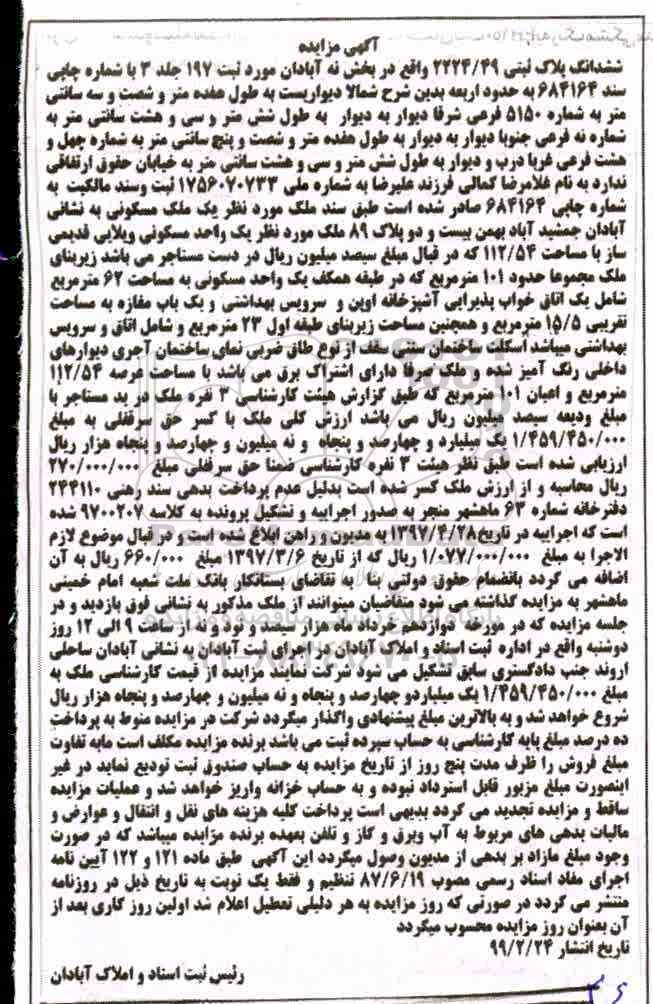 آگهی مزایده
ششدانگ پلاک ثبتی ۲۲۲۴/۴۹ واقع در بخش نه آبادان مورد ثبت ۱۹۷ جلد ۳ با شماره چاپی
سند ۶۸۴۱۶۴ به حدود اربعه بدین شرح شمالا دیواریست به طول هفده متر و شصت و سه سانتی
متر به شماره ۵۱۵۰ فرعی شرقا دیوار به دیوار به طول شش متر و سی و هشت سانتی متر به
شماره نه فرعی جنوبا دیوار به دیوار به طول هفده متر و شصت و پنج سانتی متر به شماره چهل و
هشت فرعی غربا درب و دیوار به طول شش متر و سی و هشت سانتی متر به خیابان حقوق ارتفاقی
ندارد به نام غلامرضا کمالی فرزند علیرضا به شماره ملی ۱۷۵۶۰۷۰۷۳۳ ثبت وسند مالکیت به
شماره چاپی ۶۸۴۱۶۴ صادر شده است طبق سند ملک مورد نظر یک ملک مسکونی به نشانی
آبادان جمشید آباد بهمن بیست و دو پلاک ۸۹ ملک مورد نظر یک واحد مسکونی ویلایی قدیمی
ساز با مساحت ۱۱۲/۵۴ که در قبال مبلغ سیصد میلیون ریال در دست مستاجر می باشد زیربنای
ملک مجموعا حدود ۱۰۱ مترمربع که در طبقه همکف یک واحد مسکونی به مساحت ۶۲ مترمربع
شامل یک اتاق خواب پذیرایی آشپزخانه اوپن و سرویس بهداشتی و یک باب مغازه به مساحت
تقریبی ۱۵/۵ مترمربع و همچنین مساحت زیربنای طبقه اول ۲۳ مترمربع و شامل اتاق و سرویس
بهداشتی میباشد اسکلت ساختمان سنتی سقف از نوع طاق ضربی نمای ساختمان آجری دیوارهای
داخلی رنگ آمیز شده و ملک صرفا دارای اشتراک برق می باشد با مساحت عرصه ۱۱۲/۵۴
مترمربع و اعیان ۱۰۱ مترمربع که طبق گزارش هیئت کارشناسی ۳ نفره ملک در ید مستاجر با
مبلغ ودیعه سیصد میلیون ریال می باشد ارزش کلی ملک با کسر حق سرقفلی به مبلغ
۱/۴۵۹/۴۵۰/۰۰۰ یک میلیارد و چهارصد و پنجاه و نه میلیون و چهارصد و پنجاه هزار ریال
ارزیابی شده است طبق نظر هیئت ۳ نفره کارشناسی ضمنا حق سرقفلی مبلغ ۲۷۰/۰۰۰/۰۰۰
ریال محاسبه و از ارزش ملک کسر شده است بدلیل عدم پرداخت بدهی سند رهنی ۲۴۴۱۱۰
دفترخانه شماره ۶۳ ماهشهر منجر به صدور اجراییه و تشکیل پرونده به کلاسه ۹۷۰۰۲۰۷ شده
است که اجراییه در تاریخ ۱۳۹۷/۴/۲۸ به مدیون و راهن ابلاغ شده است و در قبال موضوع لازم
الاجرا به مبلغ ۱/۰۷۷/۰۰۰/۰۰۰ ریال که از تاریخ ۱۳۹۷/۳/۶ مبلغ ۶۶۰/۰۰۰ ریال به آن
اضافه می گردد بانضمام حقوق دولتی بنا به تقاضای بستانکار بانک ملت شعبه امام خمینی
ماهشهر به مزایده گذاشته می شود متقاضیان میتوانند از ملک مذکور به نشانی فوق بازدید و در
جلسه مزایده که در مورخه دوازدهم خرداد ماه هزار سیصد و نود و نه از ساعت ۹ الی ۱۲ روز
دوشنبه واقع در اداره ثبت اسناد و املاک آبادان در اجرای ثبت آبادان به نشانی آبادان ساحلی
اروند جنب دادگستری سابق تشکیل می شود شرکت نمایند مزایده از قیمت کارشناسی ملک به
مبلغ ۱/۴۵۹/۴۵۰/۰۰۰ یک میلیاردو چهارصد و پنجاه و نه میلیون و چهارصد و پنجاه هزار ریال
شروع خواهد شد و به بالاترین مبلغ پیشنهادی واگذار میگردد شرکت در مزایده منوط به پرداخت
ده درصد مبلغ پایه کارشناسی به حساب سپرده ثبت می باشد برنده مزایده مکلف است مابه تفاوت
مبلغ فروش را ظرف مدت پنج روز از تاریخ مزایده به حساب صندوق ثبت تودیع نماید در غیر
اینصورت مبلغ مزبور قابل استرداد نبوده و به حساب خزانه واریز خواهد شد و عملیات مزایده
ساقط و مزایده تجدید می گردد بدیهی است پرداخت کلیه هزینه های نقل و انتقال و عوارض و
مالیات بدهی های مربوط به آب وبرق و گاز و تلفن بعهده برنده مزایده میباشد که در صورت
وجود مبلغ مازاد بر بدهی از مدیون وصول میگردد این آگهی طبق ماده ۱۲۱ و ۱۲۲ آیین نامه
اجرای مفاد اسناد رسمی مصوب ۸۷/۶/۱۹ تنظیم و فقط یک نوبت به تاریخ ذیل در روزنامه
منتشر می گردد در صورتی که روز مزایده به هر دلیلی تعطیل اعلام شد اولین روز کاری بعد از
آن بعنوان روز مزایده محسوب میگردد
تاریخ انتشار ۹۹/۲/۲۴
رئیس ثبت اسناد و املاک آبادان